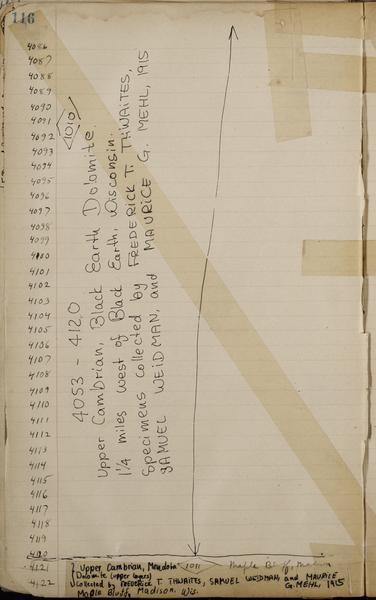 116
4086
4087
4088
4089
4090
4091
4092
4093
4094
4095
4096
4097
4098
4099
4100
4101
4102
4103
4104
4105
4106
4107
4108
4109
4110
4111
4112
4113
4114
4115
4116
4117
4118
4119
4120
4121
4122
1010
4053 - 4120
Upper Cambrian, Black Earth Dolomite
1 1/4 miles west of Black Earth, Wisconsin.
Specimens collected by FREDERICK T. THWAITES,
SAMUEL WEIDMAN, and MAURICE G. MEHL, 1915
Upper Cambrian, Mendota 1011 Maple Bluff,
Dolomite (upper layers)
Collected by FREDERICK T. THWAITES, SAMUEL WEIDMAN, and MAURICE
G. MEHL, 1915
Maple Bluff, Madison, Wis.